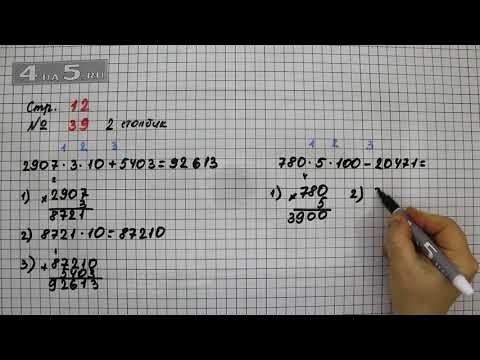 4 НА 5.RU
Стр. 12
№ 39 2 столбик
1 2 3
2907 · 3 · 10 + 5403 = 92613
1) 2
× 2907
3
8721
2) 8721 · 10 = 87210
3) 1
+ 87210
5403
92613
1 2 3
780 · 5 · 100 - 20471 =
1) 4
× 780
5
3900
2)